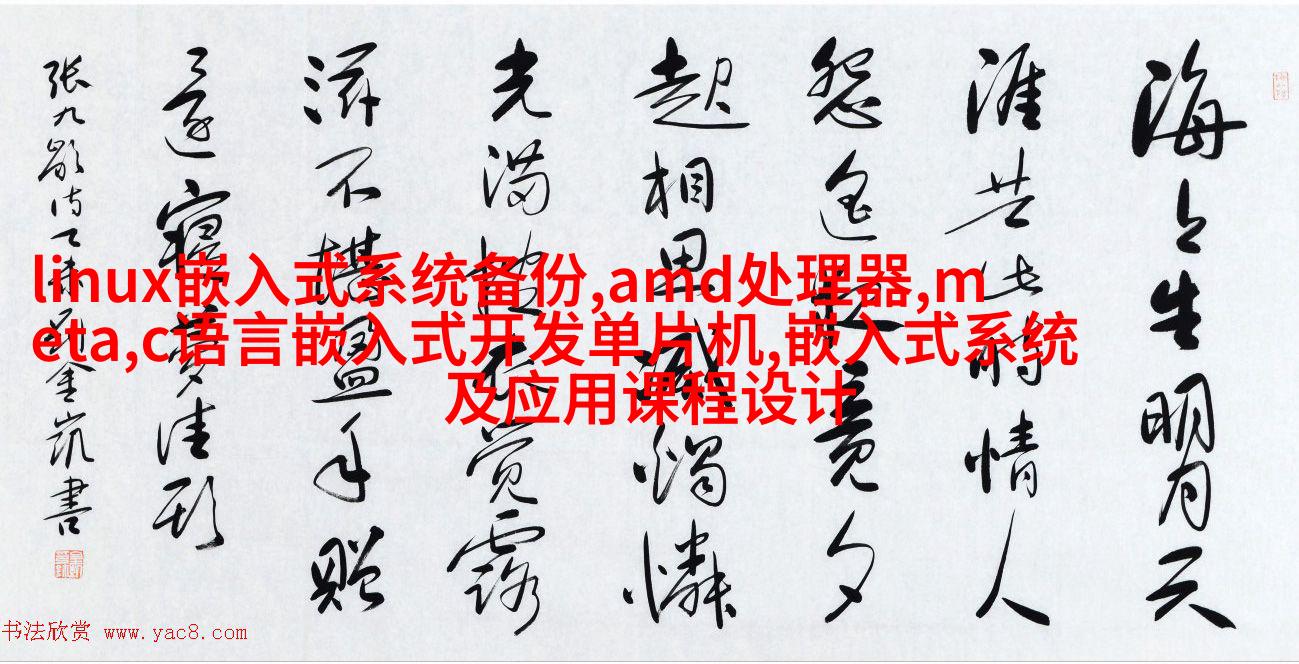 海上生明月天
涯共此时情人
怨遥夜竟夕
起相思滅燭憐
光满披衣觉露
滋不堪盈手赠
还寝梦佳期
张九龄诗 書
linux嵌入式系统备份,amd处理器,m
eta,c语言嵌入式开发单片机,嵌入式系统
及应用课程设计
书法欣赏 www.yac8.com